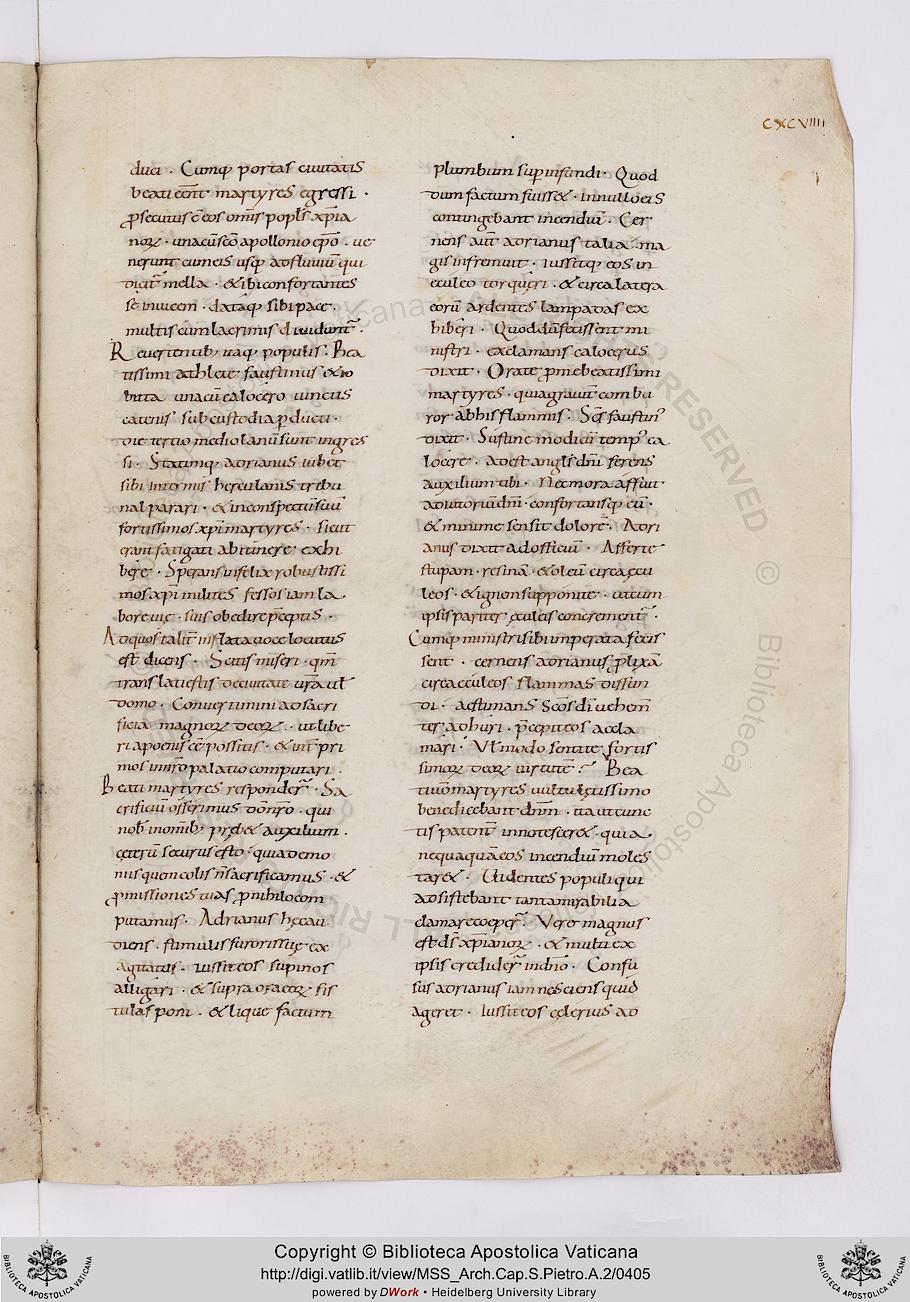 CXCVIIII
duci . Cumq; portas ciuitatis
beati eēnt martyres egressi .
ꝓsecutus ē eos omīs popl̄s xp̄ia
noꝝ . unacū sc̄o apollonio ep̄o . ue
nerunt cum eis usq; ad fluuium qui
dicit͛ mella . & ibi confortantes
se inuicem . dataq; sibi pace .
multis cum lacrimis diuidunt͛ .
Reuertentib; itaq; populis . Bea
tissimi athlete faustinus & io
uita unacū calocero uinctis
catenis sub custodia ꝑducti .
die tertio mediolanū sunt ingres
si . Statimq; adrianus iubet
sibi in termis herculanis tribu
nal parari . & in conspectū suū
fortissimos xp̄i martyres . sicut
erant fatigati ab itinere exhi
bere . Sperans infelix robustissi
mos xp̄i milites fessos iam la
bore uie . suis obedire p̄ceptis .
Ad quos talit͛ inflata uoce locutus
est dicens . Scitis miseri . qm̄
translati estis de ciuitate ur̄a ul̄
domo . Conuertimini ad sacri
ficia magnoꝝ deoꝝ . ut libe
ri a poenis eē possitis . & int͛ pri
mos in nr̄o palatio computari .
Beati martyres responder̄ . Sa
crificiū offerimus dō nr̄o . qui
nob̄ in omīb; preb& auxilium .
ceterū securus esto . quia demo
niis quen colis n̄ sacrificamus . &
ꝓmissiones tuas ꝓ nihilo com
putamus . Adrianus hęc au
diens . stimulis furoris suę ex
agitatus . iussit eos supinos
alligari . & supra ora eoꝝ fis
tulas poni . & lique factum
plumbum suꝑinfundi . Quod
dum factum fuiss& . in nullo eis
contingebant incendiū . Cer
nens aut̄ adrianus talia . ma
gis infremuit . iussitq; eos in
eculeo torqueri . & circa latera
eorū ardentes lampadas ex
hiberi . Quod dū fecissent mi
nistri . exclamans calocerus
dixit . Orate ꝓ me beatissimi
martyres . quia grauit͛ combu
ror ab his flammis . Sc̄s faustin͛
dixit . Sustine modicū temp͛ ca
locere . adest angl̄s dn̄i ferens
auxilium tibi . Nec mora affuit
adiutoriū dn̄i . confortansq; eū .
& minime sensit dolorē . Adri
anus dixit ad officiū . Afferte
stupam . resinā . & oleū circa ecu
leos . & ignem supponite . ut cum
ipsis pariter eculeis concrement͛ .
Cumq; ministri sibi imperata fecis
sent . cernens adrianus ꝓlixā
circa eculeos flammas diffun
di . aestimans sc̄os dī uehem̄
ter adhuri . p̄cepit eos accla
mari . Vl̄ modo sentite fortis
simoꝝ deoꝝ uirtutē ? Bea
ti uō martyres uultu lętissimo
benedicebant dn̄m . ita ut cunc
tis patent͛ innotescer& . quia
nequaquā eos incendiū moles
tar& . Uidentes populi qui
adsistebant tanta mirabilia
clamare coeper̄ . Vere magnus
est dī xp̄ianoꝝ . & multi ex
ipsis credider̄ in dn̄o . Confu
sus adrianus iam nesciens quid
ageret . Iussit eos celerius ad
Copyright © Biblioteca Apostolica Vaticana
http://digi.vatlib.it/view/MSS_Arch.Cap.S.Pietro.A.2/0405
powered by DWork • Heidelberg University Library